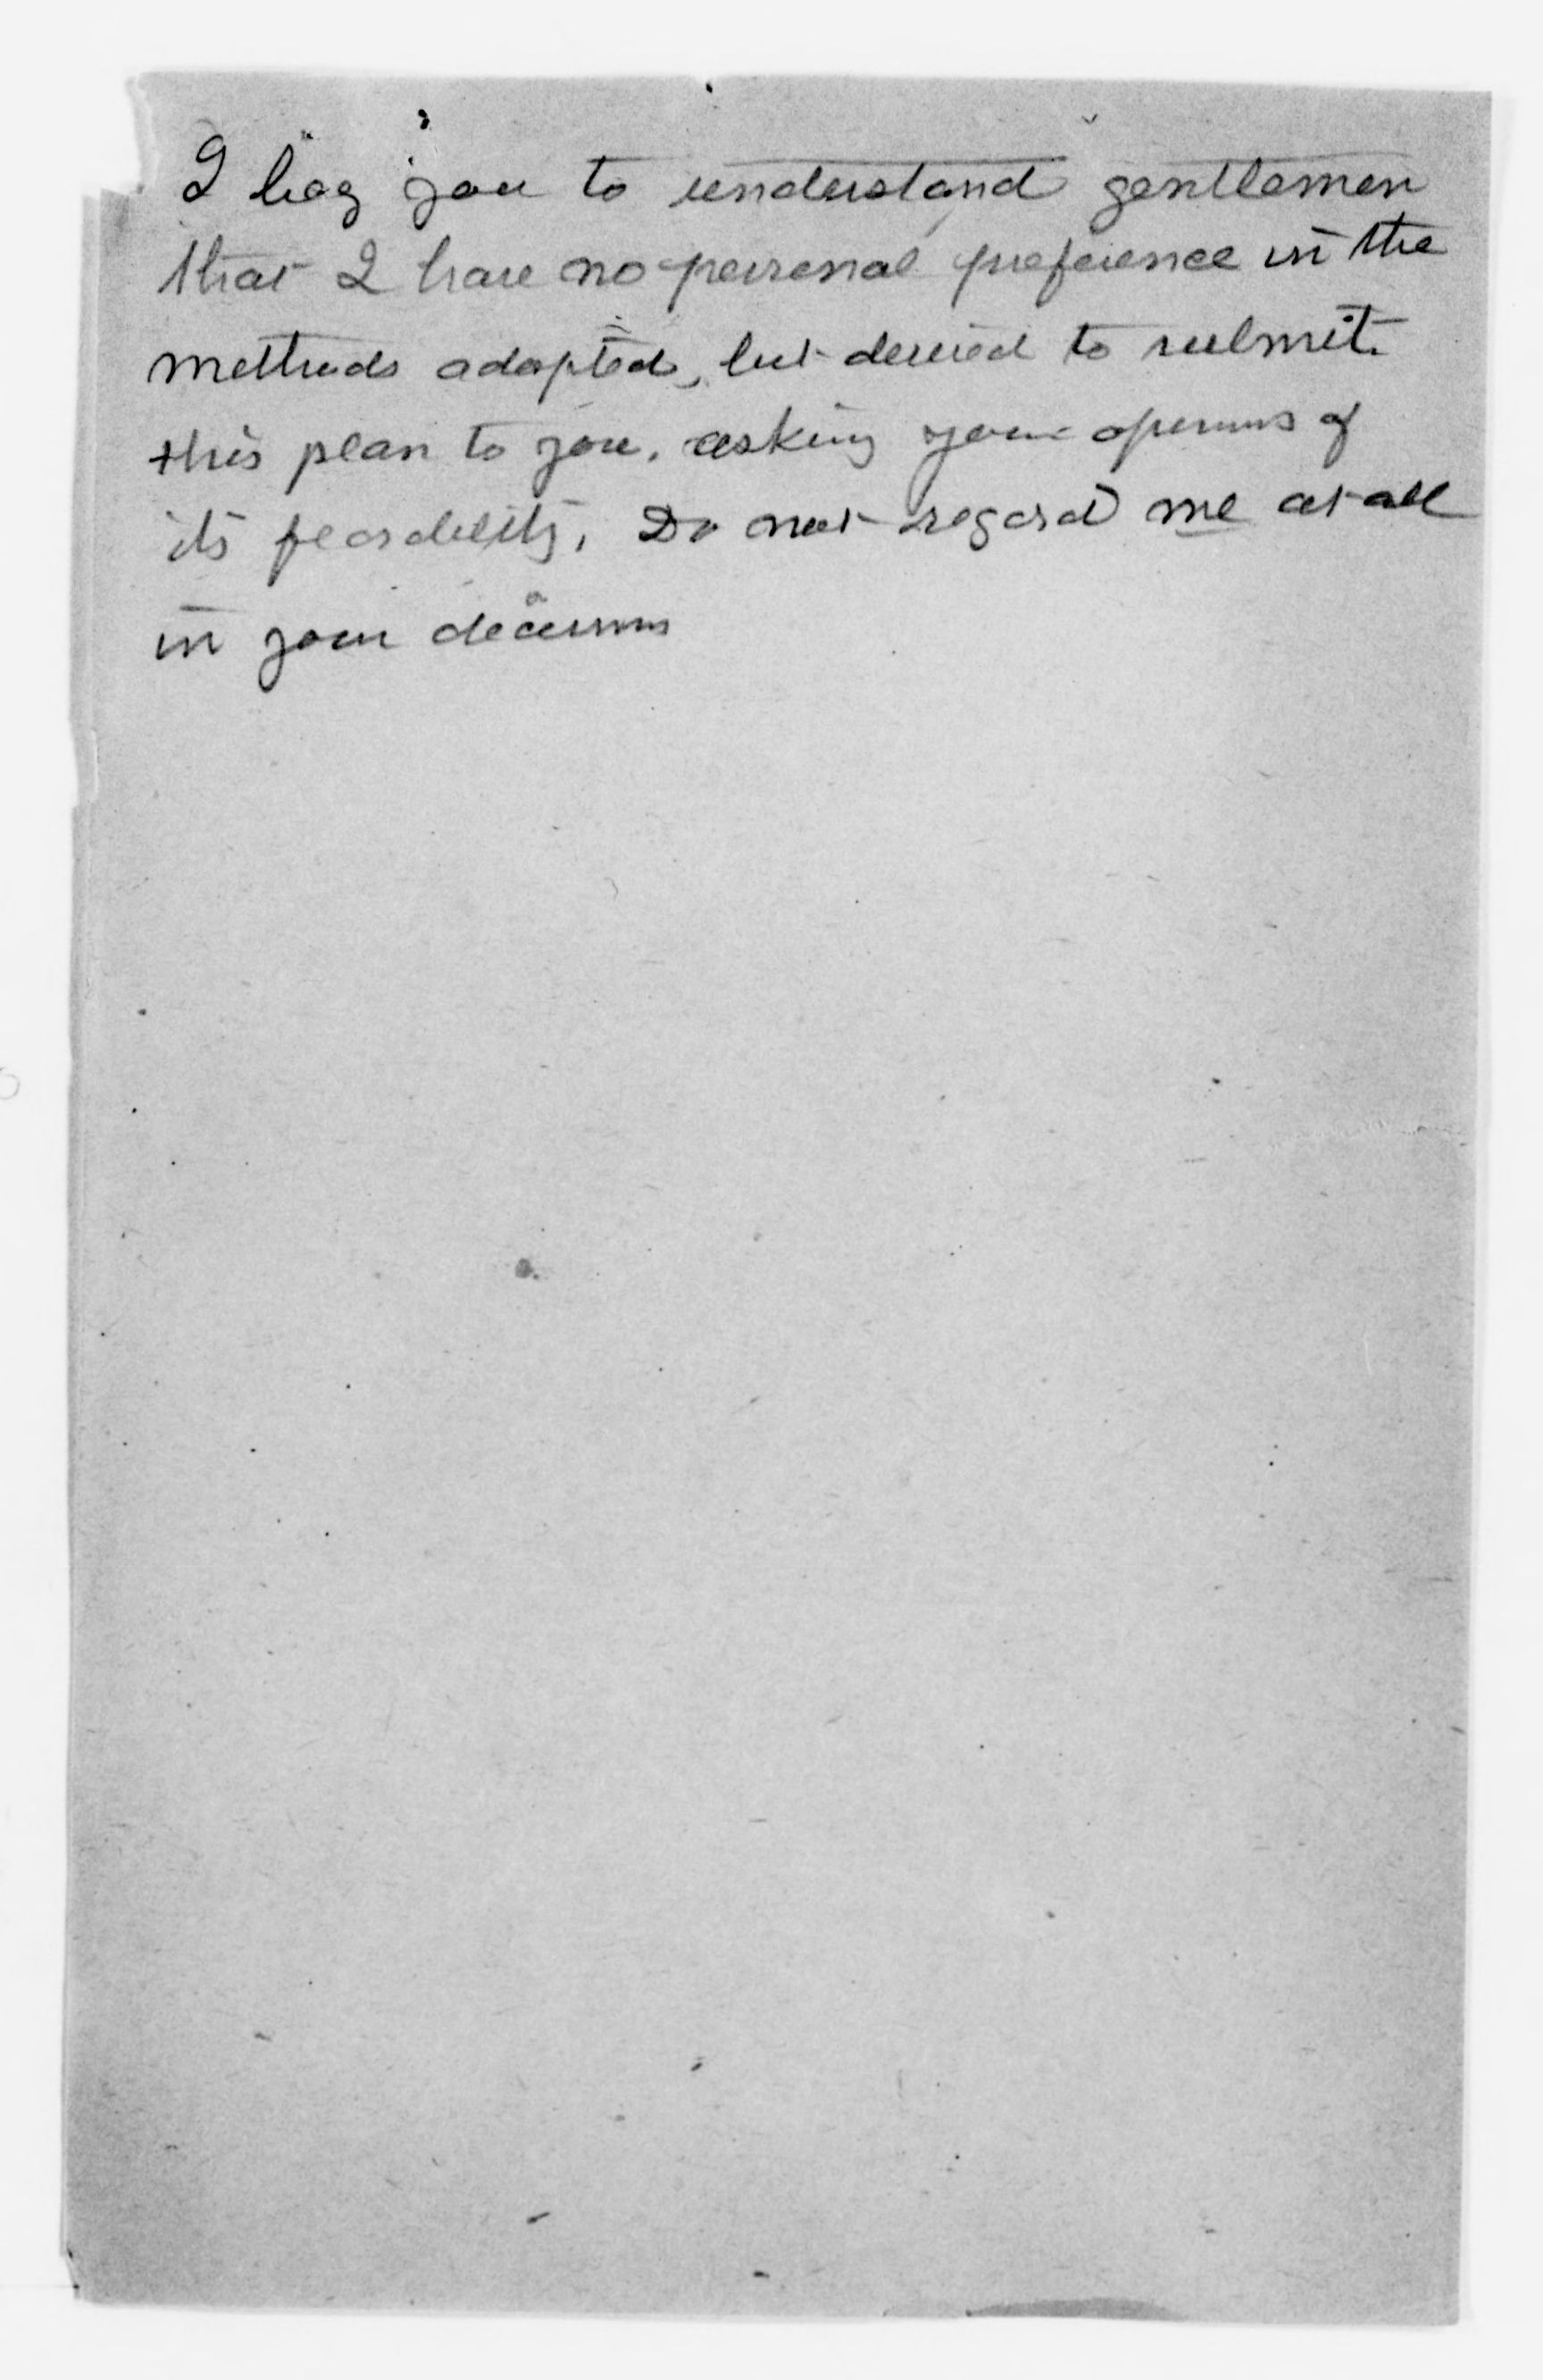 I beg you to understand gentlemen
that I have no personal preference in the
methods adopted, but desired to submit
this plan to you, asking your opinions of
its feasibility. Do not regard me at all
in your decisions